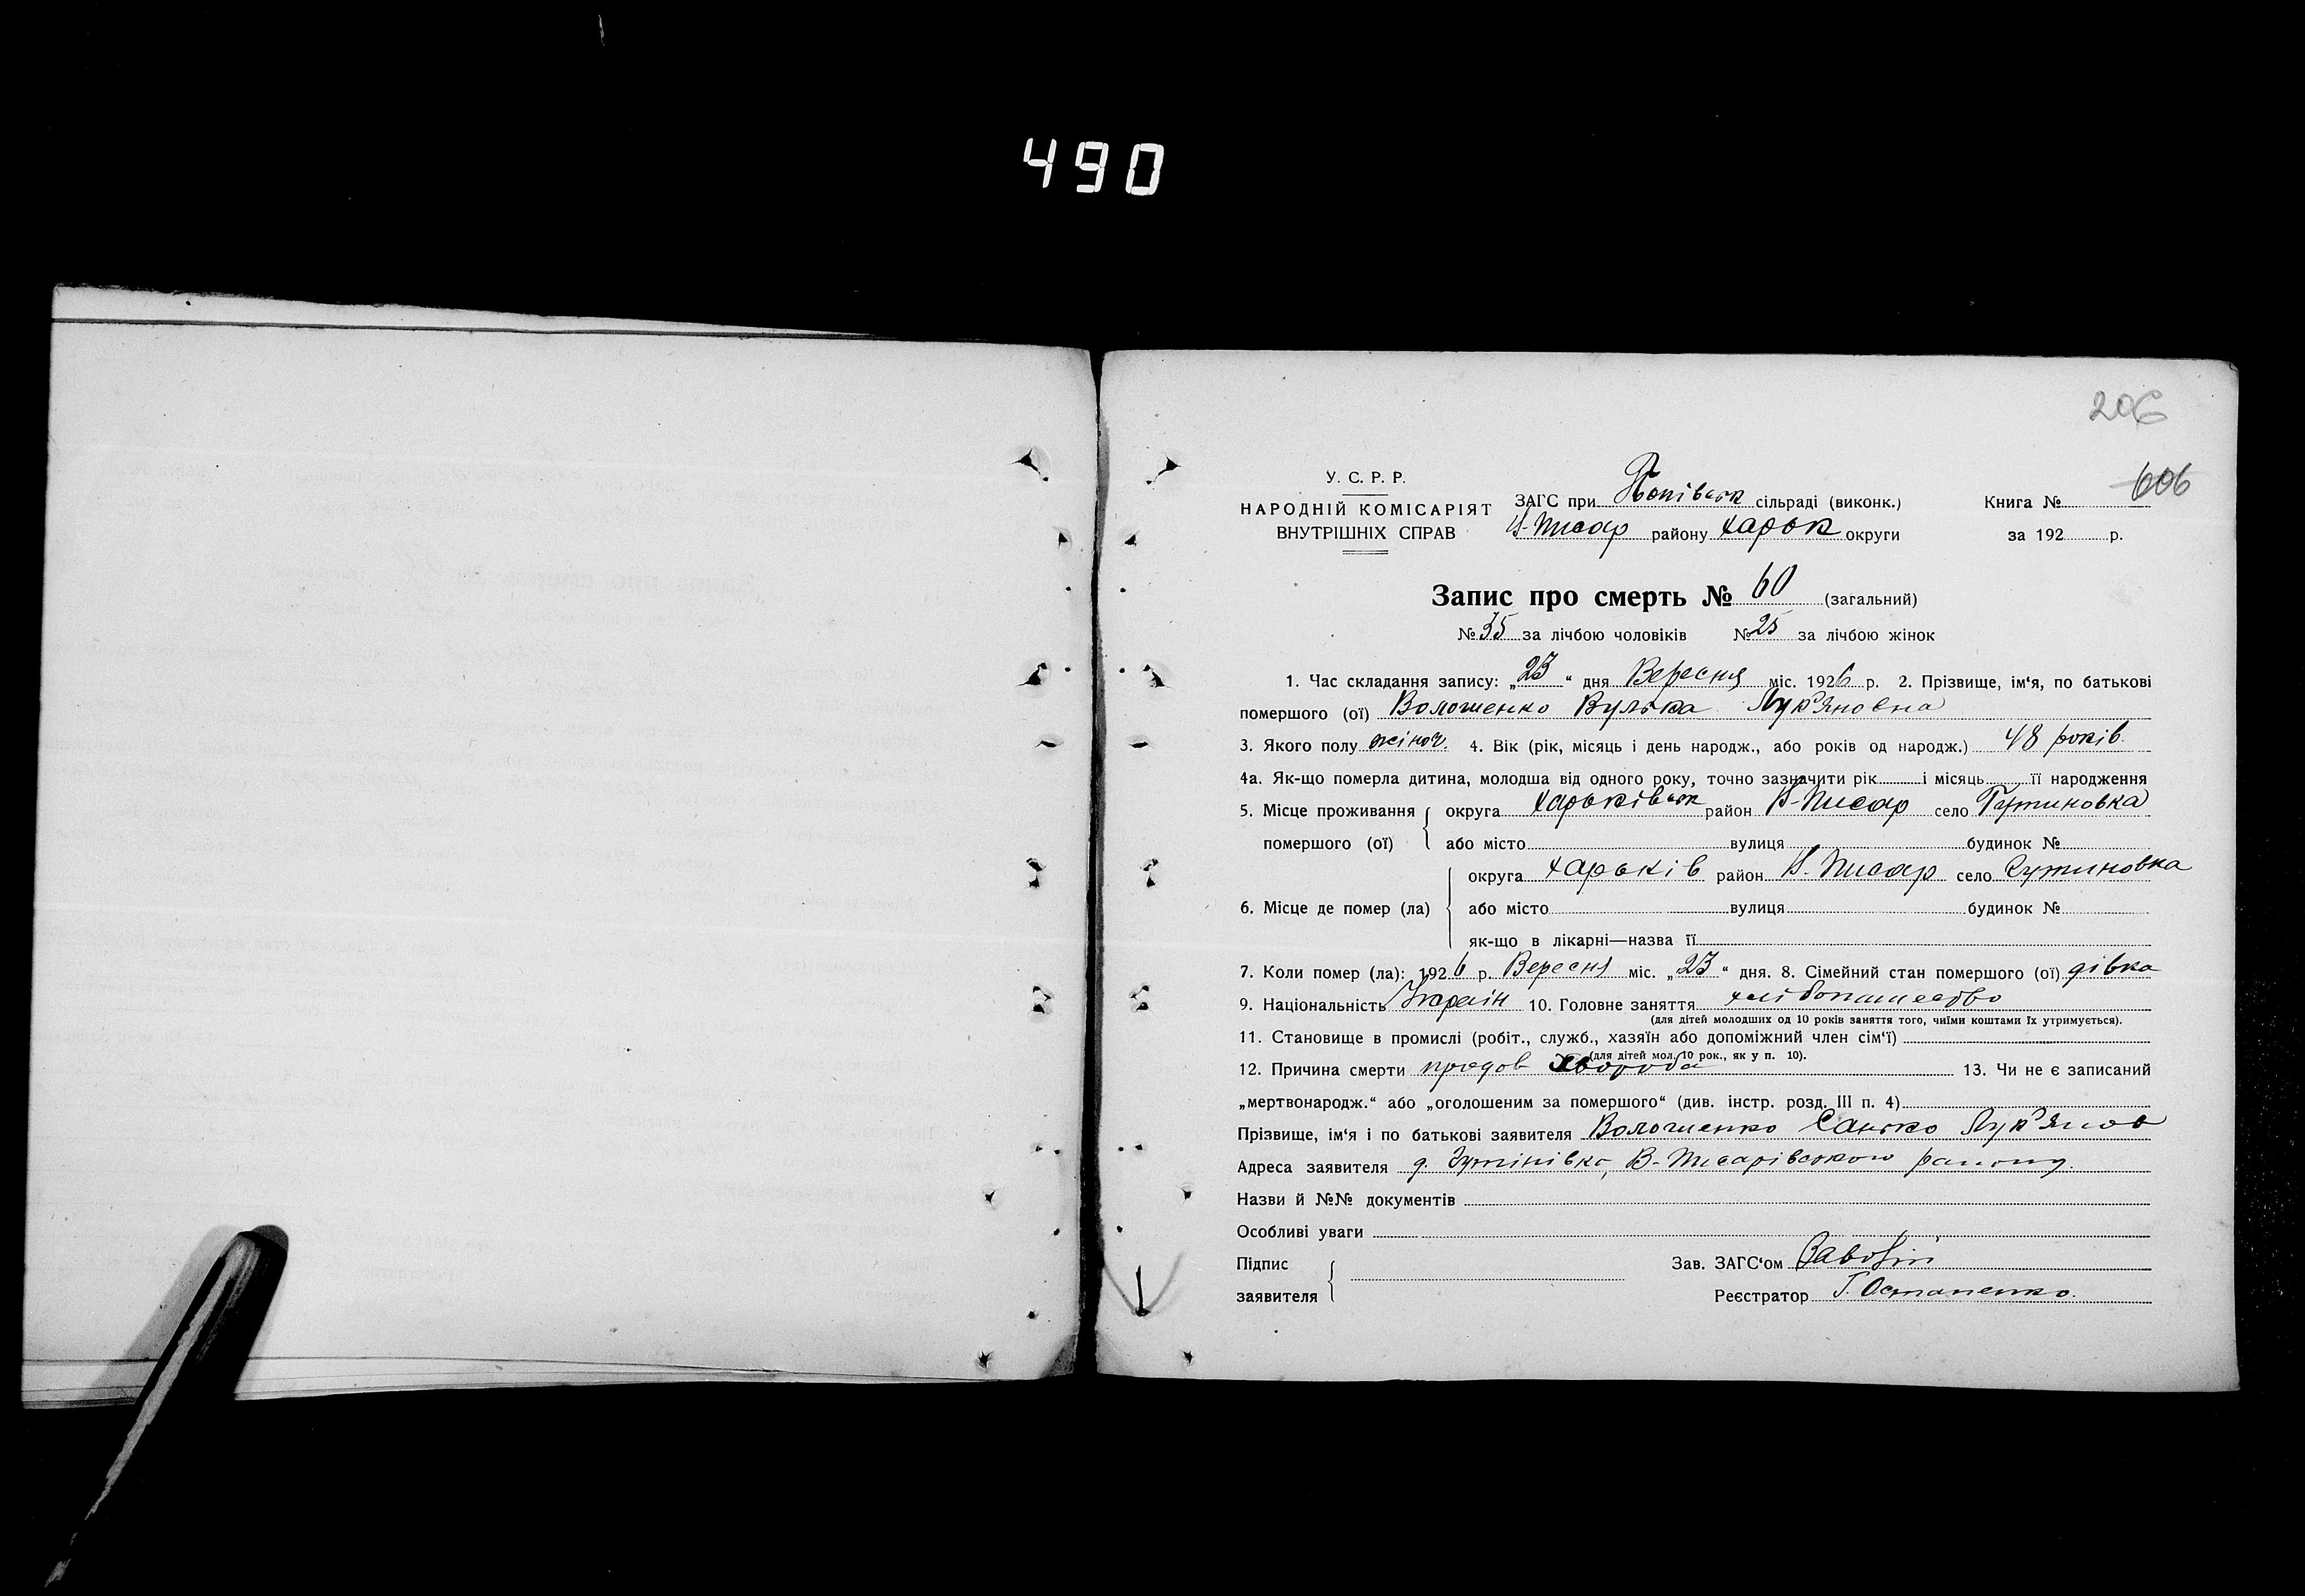 490
206
606
У. С. Р. Р.
НАРОДНІЙ КОМІСАРІЯТ
ВНУТРІШНІХ СПРАВ
ЗАГС при Попівськ сільраді (виконк.)
В-Писар району Харьк округи
Книга №
за 192 р.
Запис про смерть № 60 (загальний)
№ 35 за лічбою чоловіків № 25 за лічбою жінок
1. Час складання запису: „23“ дня Вересня міс. 1926 р. 2. Прізвище, ім‘я, по батькові
помершого (ої) Волошенко Вулька Лук‘яновна
3. Якого полу жіноч. 4. Вік (рік, місяць і день народж., або років од народж.) 48 років.
4а. Як-що померла дитина, молодша від одного року, точно зазначити рік і місяць її народження
5. Місце проживання помершого (ої) округа Харьківськ район В-Писар село Гутиновка
або місто вулиця будинок №
6. Місце де помер (ла) округа Харьків район В-Писар село Гутиновка
або місто вулиця будинок №
як-що в лікарні—назва її
7. Коли помер (ла): 1926 р. Вересня міс. „23“ дня. 8. Сімейний стан помершого (ої) дівка
9. Національність Україн 10. Головне заняття хлібопашество
(для дітей молодших од 10 років заняття того, чиїми коштами їх утримується).
11. Становище в промислі (робіт., служб., хазяїн або допоміжний член сім‘ї)
(для дітей мол. 10 рок., як у п. 10).
12. Причина смерти хвороба 13. Чи не є записаний
„мертвонародж.“ або „оголошеним за помершого“ (див. інстр. розд. III п. 4)
Прізвище, ім‘я і по батькові заявителя Волошенко Санько Лук‘янов
Адреса заявителя д. Гутинівка, В-Писарівського району.
Назви й №№ документів
Особливі уваги
Підпис
заявителя
Зав. ЗАГС‘ом
Реєстратор Г. Остапенко.